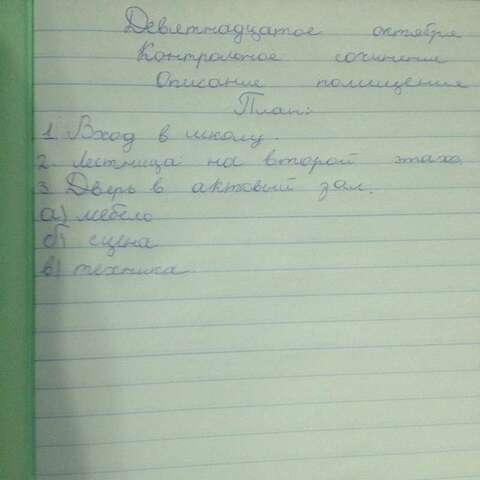 Девятнадцатое октября
Контрольное сочинение
Описание помещения
План:
1. Вход в школу.
2. Лестница на второй этаж
3 Дверь в актовый зал.
а) мебель
б) сцена
в) техника.